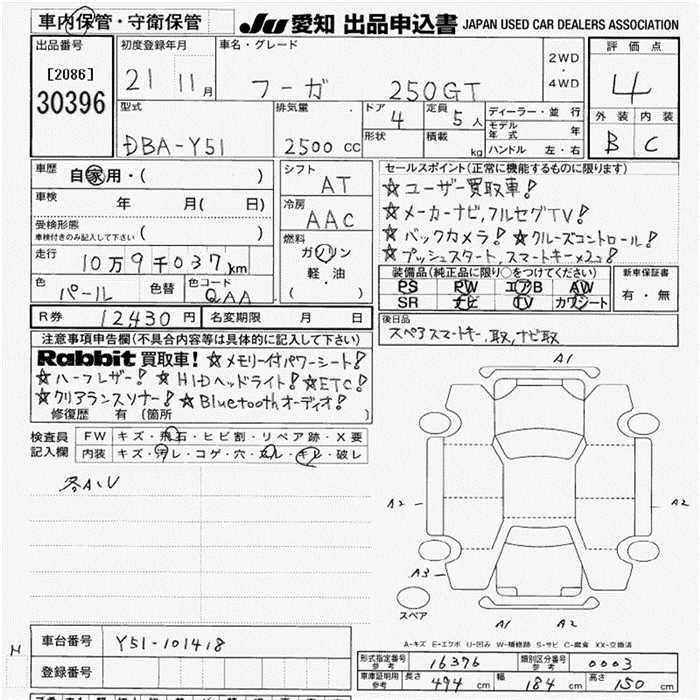 車内保管・守衛保管
JU 愛知 出品申込書 JAPAN USED CAR DEALERS ASSOCIATION
出品番号 初度登録年月 車名・グレード 2WD・4WD 評価点
[2086] 21 11月 フーガ 250GT 4
30396
型式 排気量 ドア 定員 ディーラー・並行 外装 内装
DBA-Y51 2500 CC 4 5人 モデル年式 年 B C
形状 積載 kg ハンドル 左・右
車歴 自家用・( ) シフト AT セールスポイント(正常に機能するものに限ります)
☆ユーザー買取車!
車検 年 月( 日) 冷房 AAC ☆メーカーナビ,フルセグTV!
受検形態 ( ) ☆バックカメラ! ☆クルーズコントロール!
車検付きのみ記入して下さい
☆プッシュスタート,スマートキー×2コ!
走行 10万9千037km 燃料 ガソリン 軽・油 ( )
装備品(純正品に限り○をつけてください) 新車保証書
PS PW エアB AW 有・無
SR ナビ TV カワシート
色 パール 色替 色コード QAA
R券 12,430円 名変期限 月 日 後日品
スペアスマートキー,取,ナビ取
注意事項申告欄(不具合内容等は具体的に記入して下さい)
Rabbit 買取車! ☆メモリー付パワーシート!
☆ハーフレザー! ☆HIDヘッドライト! ☆ETC!
☆クリアランスソナー! ☆Bluetoothオーディオ!
修復歴 有 (箇所
検査員記入欄 FW キズ・飛石・ヒビ割・リペア跡・X要
内装 キズ・汚レ・コゲ・穴・スレ・キレ・破レ
各A、U
A1
A2 A2
A3
スペア
A1 A2
A-キズ E-エクボ U-凹み W-補修跡 S-サビ C-腐食 XX-交換済
H
車台番号 Y51-101418
登録番号
形式指定番号 参考 16376 類別区分番号 参考 0003
車庫証明用 参考 長さ 494 cm 幅 184 cm 高さ 150 cm